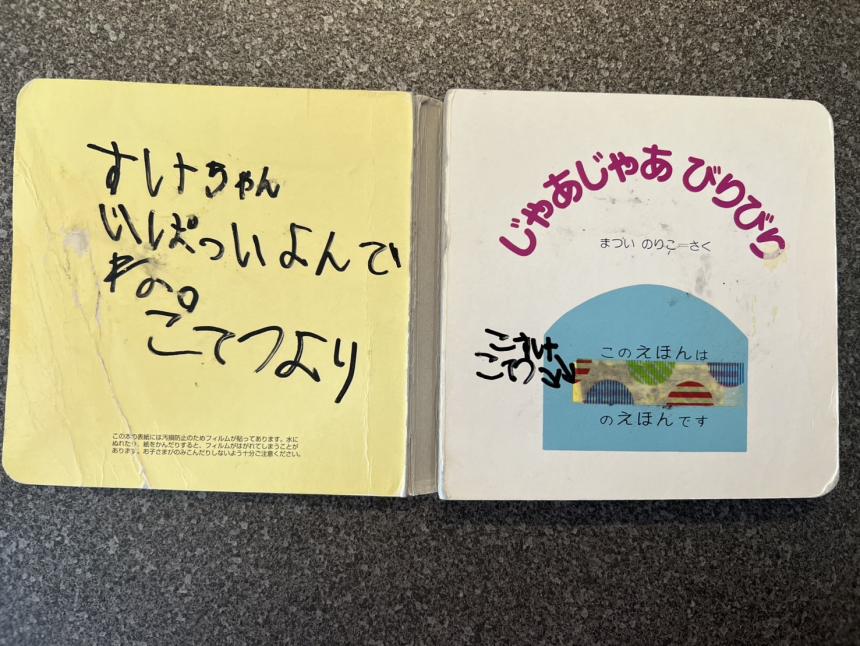 すけちゃん
いっぱついよんで
ね。
こてつより
この本の表紙には汚損防止のためフィルムが貼ってあります。水に
ぬれたり、紙をかんだりすると、フィルムがはがれてしまうことが
あります。お子さまがのみこんだりしないよう十分ご注意ください。
じゃあじゃあ びりびり
まつい のりこ=さく
このえほんは
こてつ
のえほんです